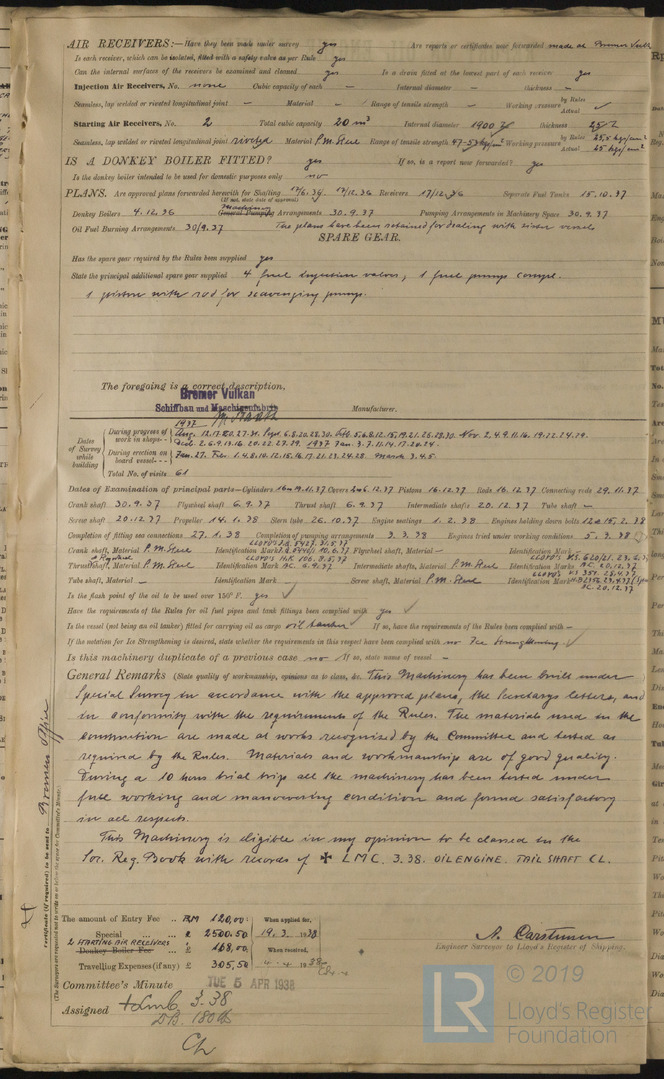 AIR RECEIVERS:—Have they been made under survey yes Are reports or certificates now forwarded made at Bremer Vulk
Is each receiver, which can be isolated, fitted with a safety valve as per Rule yes
Can the internal surfaces of the receivers be examined and cleaned yes Is a drain fitted at the lowest part of each receiver yes
Injection Air Receivers, No. none Cubic capacity of each — Internal diameter — thickness —
Seamless, lap welded or riveted longitudinal joint — Material — Range of tensile strength — Working pressure by Rules Actual
Starting Air Receivers, No. 2 Total cubic capacity 20 m³ Internal diameter 1900 thickness 25
Seamless, lap welded or riveted longitudinal joint riveted Material P.M. Steel Range of tensile strength 47-53 kg/mm² Working pressure by Rules 25,5 kgs/cm² Actual 25 kgs/cm²
IS A DONKEY BOILER FITTED? yes If so, is a report now forwarded? yes
Is the donkey boiler intended to be used for domestic purposes only no
PLANS. Are approved plans forwarded herewith for Shafting 17/12.36 Receivers 17/12.36 Separate Fuel Tanks 15.10.37
(If not, state date of approval)
Donkey Boilers 4.12.36 Machinery General Pumping Arrangements 30.9.37 Pumping Arrangements in Machinery Space 30.9.37
Oil Fuel Burning Arrangements 30/9.37 The plans have been retained for dealing with sister vessels
SPARE GEAR.
Has the spare gear required by the Rules been supplied yes
State the principal additional spare gear supplied 4 fuel injection valves, 1 fuel pump compl.
1 piston with rod for scavenging pump.
The foregoing is a correct description,
Bremer Vulkan
Schiffbau und Maschinenfabrik Manufacturer.
Dates of Survey while building
During progress of work in shops - - 1937 Aug. 12.17.20.27.31. Sept. 6.8.20.28.30. Oct. 5.6.8.12.15.19.21.26.28.30 Nov. 2.4.9.11.16.19.22.24.29.
Dec. 2.6.9.13.16.20.22.27.29. Jan. 3.7.11.14.17.20.24.
During erection on board vessel - - - Jan. 27. Febr. 1.4.8.10.12.15.16.17.21.23.24.28. March 3.4.5.
Total No. of visits 61
Dates of Examination of principal parts—Cylinders 16 19.11.37 Covers 6.12.37 Pistons 16.12.37 Rods 16.12.37 Connecting rods 29.11.37
Crank shaft 30.9.37 Flywheel shaft 6.9.37 Thrust shaft 6.9.37 Intermediate shafts 20.12.37 Tube shaft —
Screw shaft 20.12.37 Propeller 14.1.38 Stern tube 26.10.37 Engine seatings 1.2.38 Engines holding down bolts 12 15.2.38
Completion of fitting sea connections 27.1.38 Completion of pumping arrangements 3.3.38 Engines tried under working conditions 5.3.38
Crank shaft, Material P.M. Steel Identification Mark Flywheel shaft, Material — Identification Mark
Thrust shaft, Material P.M. Steel Identification Mark AC. 6.9.37 Intermediate shafts, Material P.M. Steel Identification Marks AC. 20.12.37
Tube shaft, Material — Identification Mark — Screw shaft, Material P.M. Steel Identification Mark
AC. 20.12.37
Is the flash point of the oil to be used over 150° F. yes
Have the requirements of the Rules for oil fuel pipes and tank fittings been complied with yes
Is the vessel (not being an oil tanker) fitted for carrying oil as cargo oil tanker If so, have the requirements of the Rules been complied with —
If the notation for Ice Strengthening is desired, state whether the requirements in this respect have been complied with no Ice Strengthening
Is this machinery duplicate of a previous case no If so, state name of vessel —
General Remarks (State quality of workmanship, opinions as to class, &c. This Machinery has been built under
Special Survey in accordance with the approved plans, the Secretarys letters, and
in conformity with the requirements of the Rules. The materials used in the
construction are made at works recognized by the Committee and tested as
required by the Rules. Materials and workmanship are of good quality.
During a 10 hours trial trip all the machinery has been tested under
full working and manoeuvring condition and found satisfactory
in all respects.
This Machinery is eligible in my opinion to be classed in the
Sor. Reg. Book with records of ✠ LMC. 3.38. OIL ENGINE. TAIL SHAFT CL.
Certificate (if required) to be sent to Bremen Office
(The Surveyors are requested not to write on or below the space for Committee's Minute.)
The amount of Entry Fee .. RM 120,00: When applied for,
Special ... .. £ 2500.50 19.3.1938
2 STARTING AIR RECEIVERS
Donkey Boiler Fee ... £ 168,00: When received,
Travelling Expenses (if any) £ 305,50 4.4.1938
A. Carstensen
Engineer Surveyor to Lloyd's Register of Shipping.
Committee's Minute TUE 5 APR 1938
Assigned + Lmb 3.38
DB. 180 lb
© 2019
LR
Lloyd's Register
Foundation